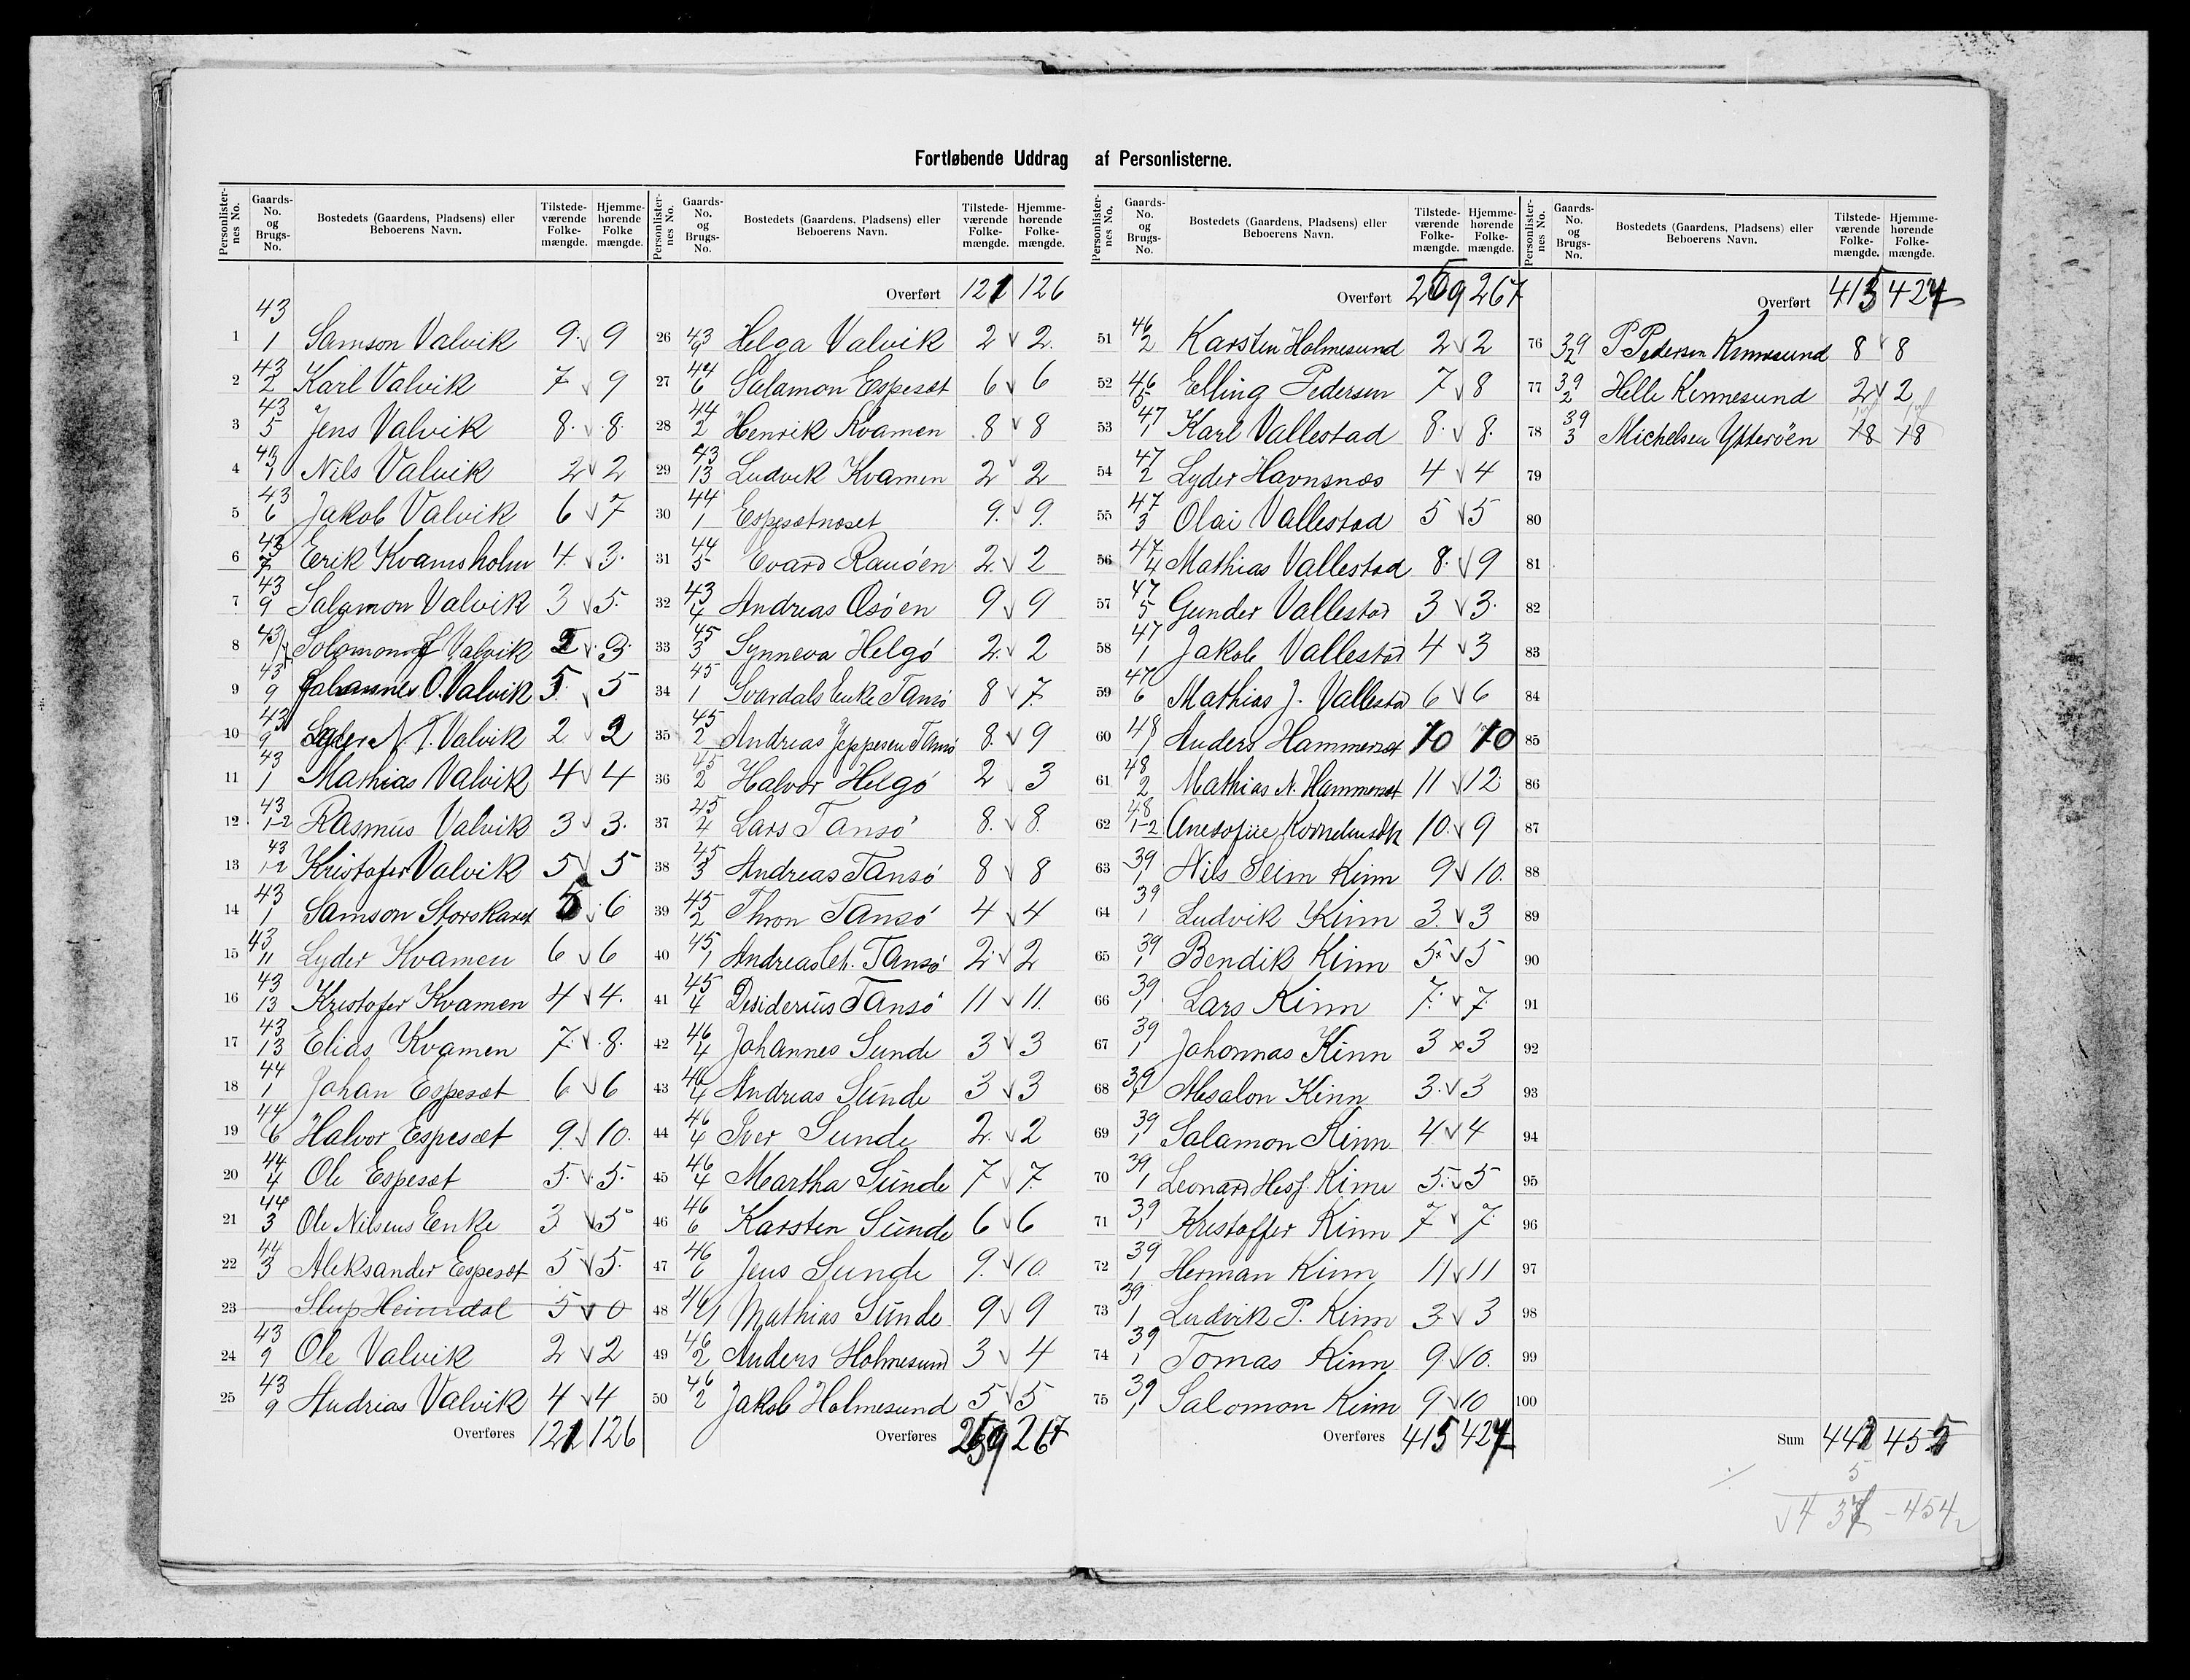 Fortløbende Uddrag af Personlisterne.
Personlisternes No. Gaards-No. og Brugs-No. Bostedets (Gaardens, Pladsens) eller Beboerens Navn. Tilstedeværende Folkemængde. Hjemmehørende Folkemængde.
1 43/1 Samson Valvik 9 9
2 43/2 Karl Valvik 7 9
3 43/5 Jens Valvik 8 8
4 43/1 Nils Valvik 2 2
5 43/6 Jakob Valvik 6 7
6 43/7 Eerik Kvamsholm 4 3
7 43/9 Salamon Valvik 3 5
8 43 Solomon Valvik 3
9 43/9 Johannes O. Valvik 5 5
10 43/9 T. Valvik 2 2
11 43/1 Mathias Valvik 4 4
12 43/1-2 Rasmus Valvik 3 3
13 43/1-2 Kristofer Valvik 5 5
14 43/1 Samson Storskaret 5 6
15 43/11 Lyder Kvamen 6 6
16 43/13 Kristofer Kvamen 4 4
17 43/13 Elias Kvamen 7 8
18 44/1 Johan Espesæt 6 6
19 44/6 Halvor Espesæt 9 10
20 44/4 Ole Espesæt 5 5
21 44/3 Ole Nilsens Enke 3 5
22 44/3 Aleksander Espesæt 5 5
23 Slup Heimdal 5 0
24 43/9 Ole Valvik 2 2
25 43/9 Andrias Valvik 4 4
Overføres 121 126
Overført 121 126
26 43/9 Helga Valvik 2 2
27 44/6 Salamon Espesæt 6 6
28 44/2 Henrik Kvamen 8 8
29 43/13 Ludvik Kvamen 2 2
30 44/1 Espesætnoset 9 9
31 44/5 Evard Rauöen 2 2
32 43/4 Andreas Osöen 9 9
33 45/3 Synneva Helgö 2 2
34 45/1 Svardals Enke Tansö 8 7
35 45/2 Andreas Jeppesen Tansö 8 9
36 45/2 Halvor Helgö 2 3
37 45/4 Lars Tansö 8 8
38 45/3 Andreas Tansö 8 8
39 45/2 Thron Tansö 4 4
40 45/1 Andreas Ch. Tansö 2 2
41 45/4 Desiderius Tansö 11 11
42 46/4 Johannes Sunde 3 3
43 46/4 Andreas Sunde 3 3
44 46/4 Iver Sunde 2 2
45 46/4 Martha Sunde 7 7
46 46/6 Karsten Sunde 6 6
47 46/6 Jens Sunde 9 10
48 46/1 Mathias Sunde 9 9
49 46/2 Anders Holmesund 3 4
50 46/2 Jakob Holmesund 5 5
Overføres 259 267
Overført 259 267
51 46/2 Karsten Holmesund 2 2
52 46/5 Elling Pedersen 7 8
53 47/1 Karl Vallestad 8 8
54 47/2 Lyder Havnsnæs 4 4
55 47/3 Olai Vallestad 5 5
56 47/4 Mathias Vallestad 8 9
57 47/5 Gunder Vallestad 3 3
58 47/1 Jakob Vallestad 4 3
59 47/6 Mathias J. Vallestad 6 6
60 48/1 Anders Hammerset 10 10
61 48/2 Mathias N. Hammerset 11 12
62 48/1-2 Anesofiie 10 9
63 39/1 Nils Seim Kinn 9 10
64 39/1 Ludvik Kinn 3 3
65 39/1 Bendik Kinn 5 5
66 39/1 Lars Kinn 7 7
67 39/1 Johonnas Kinn 3 3
68 39/1 Absalon Kinn 3 3
69 39/1 Salamon Kinn 4 4
70 39/1 Leonard Hesj. Kinn 5 5
71 39/1 Kristoffer Kinn 7 7
72 39/1 Herman Kinn 11 11
73 39/1 Ludvik P. Kinn 3 3
74 39/1 Tomas Kinn 9 10
75 39/1 Salomon Kinn 9 10
Overføres 415 427
Overført 415 427
76 39/2 P Pedersen Kinnesund 8 8
77 39/2 Helle Kinnesund 2 2
78 39/3 Michelsen Ytteröen 18 18
79
80
81
82
83
84
85
86
87
88
89
90
91
92
93
94
95
96
97
98
99
100
Sum 442 455
5
437 - 454